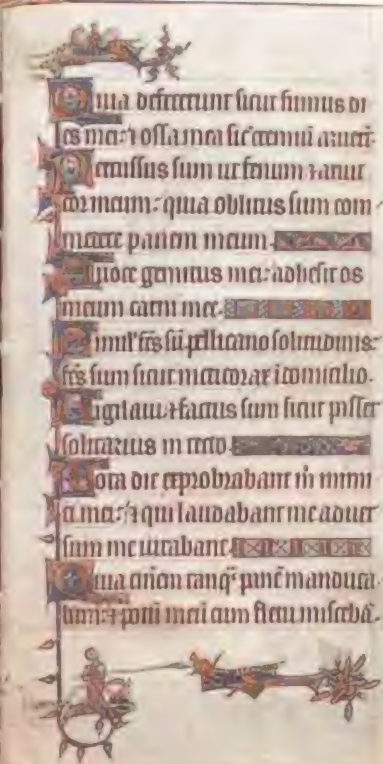 Quia defecerunt sicut fumus di
es mei: ⁊ ossa mea sic̄ cremiū aruerͭ.
Percussus sum ut fenum ⁊ aruit
cor meum: quia oblitus sum com
medere panem meum.
A uoce gemitus mei: adhesit os
meum carni mee.
Simil' fc̄s sū pellicano solitudinis:
fc̄s sum sicut nicticorax ī domicilio.
Vigilaui ⁊ factus sum sicut passer
solitarius in tecto.
Tota die exprobrabant m̄ inimi
ci mei: ⁊ qui laudabant me aduer
sum me iurabant.
Quia cinēm tanq̄ panē manduca
bam: ⁊ potū meū cum fletu miscebā.